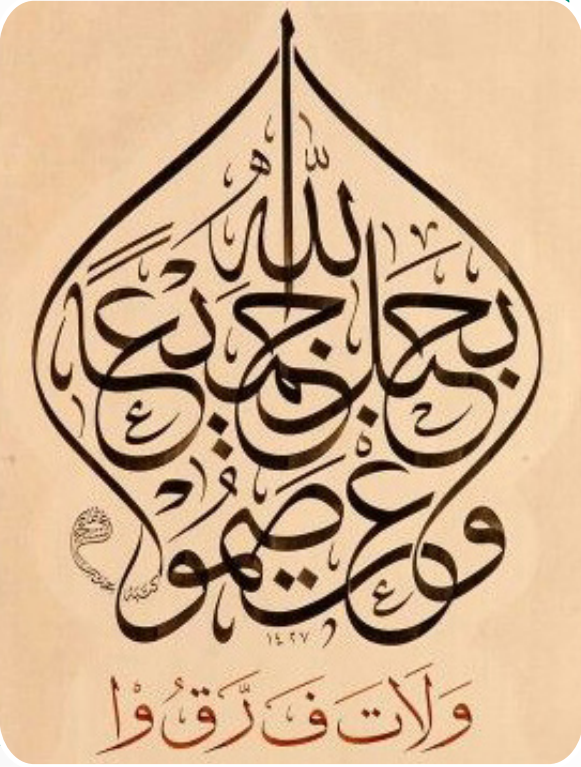 وَاعْتَصِمُوا
بِحَبْلِ اللهِ جَمِيعًا
١٤٢٧
وَلَا تَفَرَّقُوْا